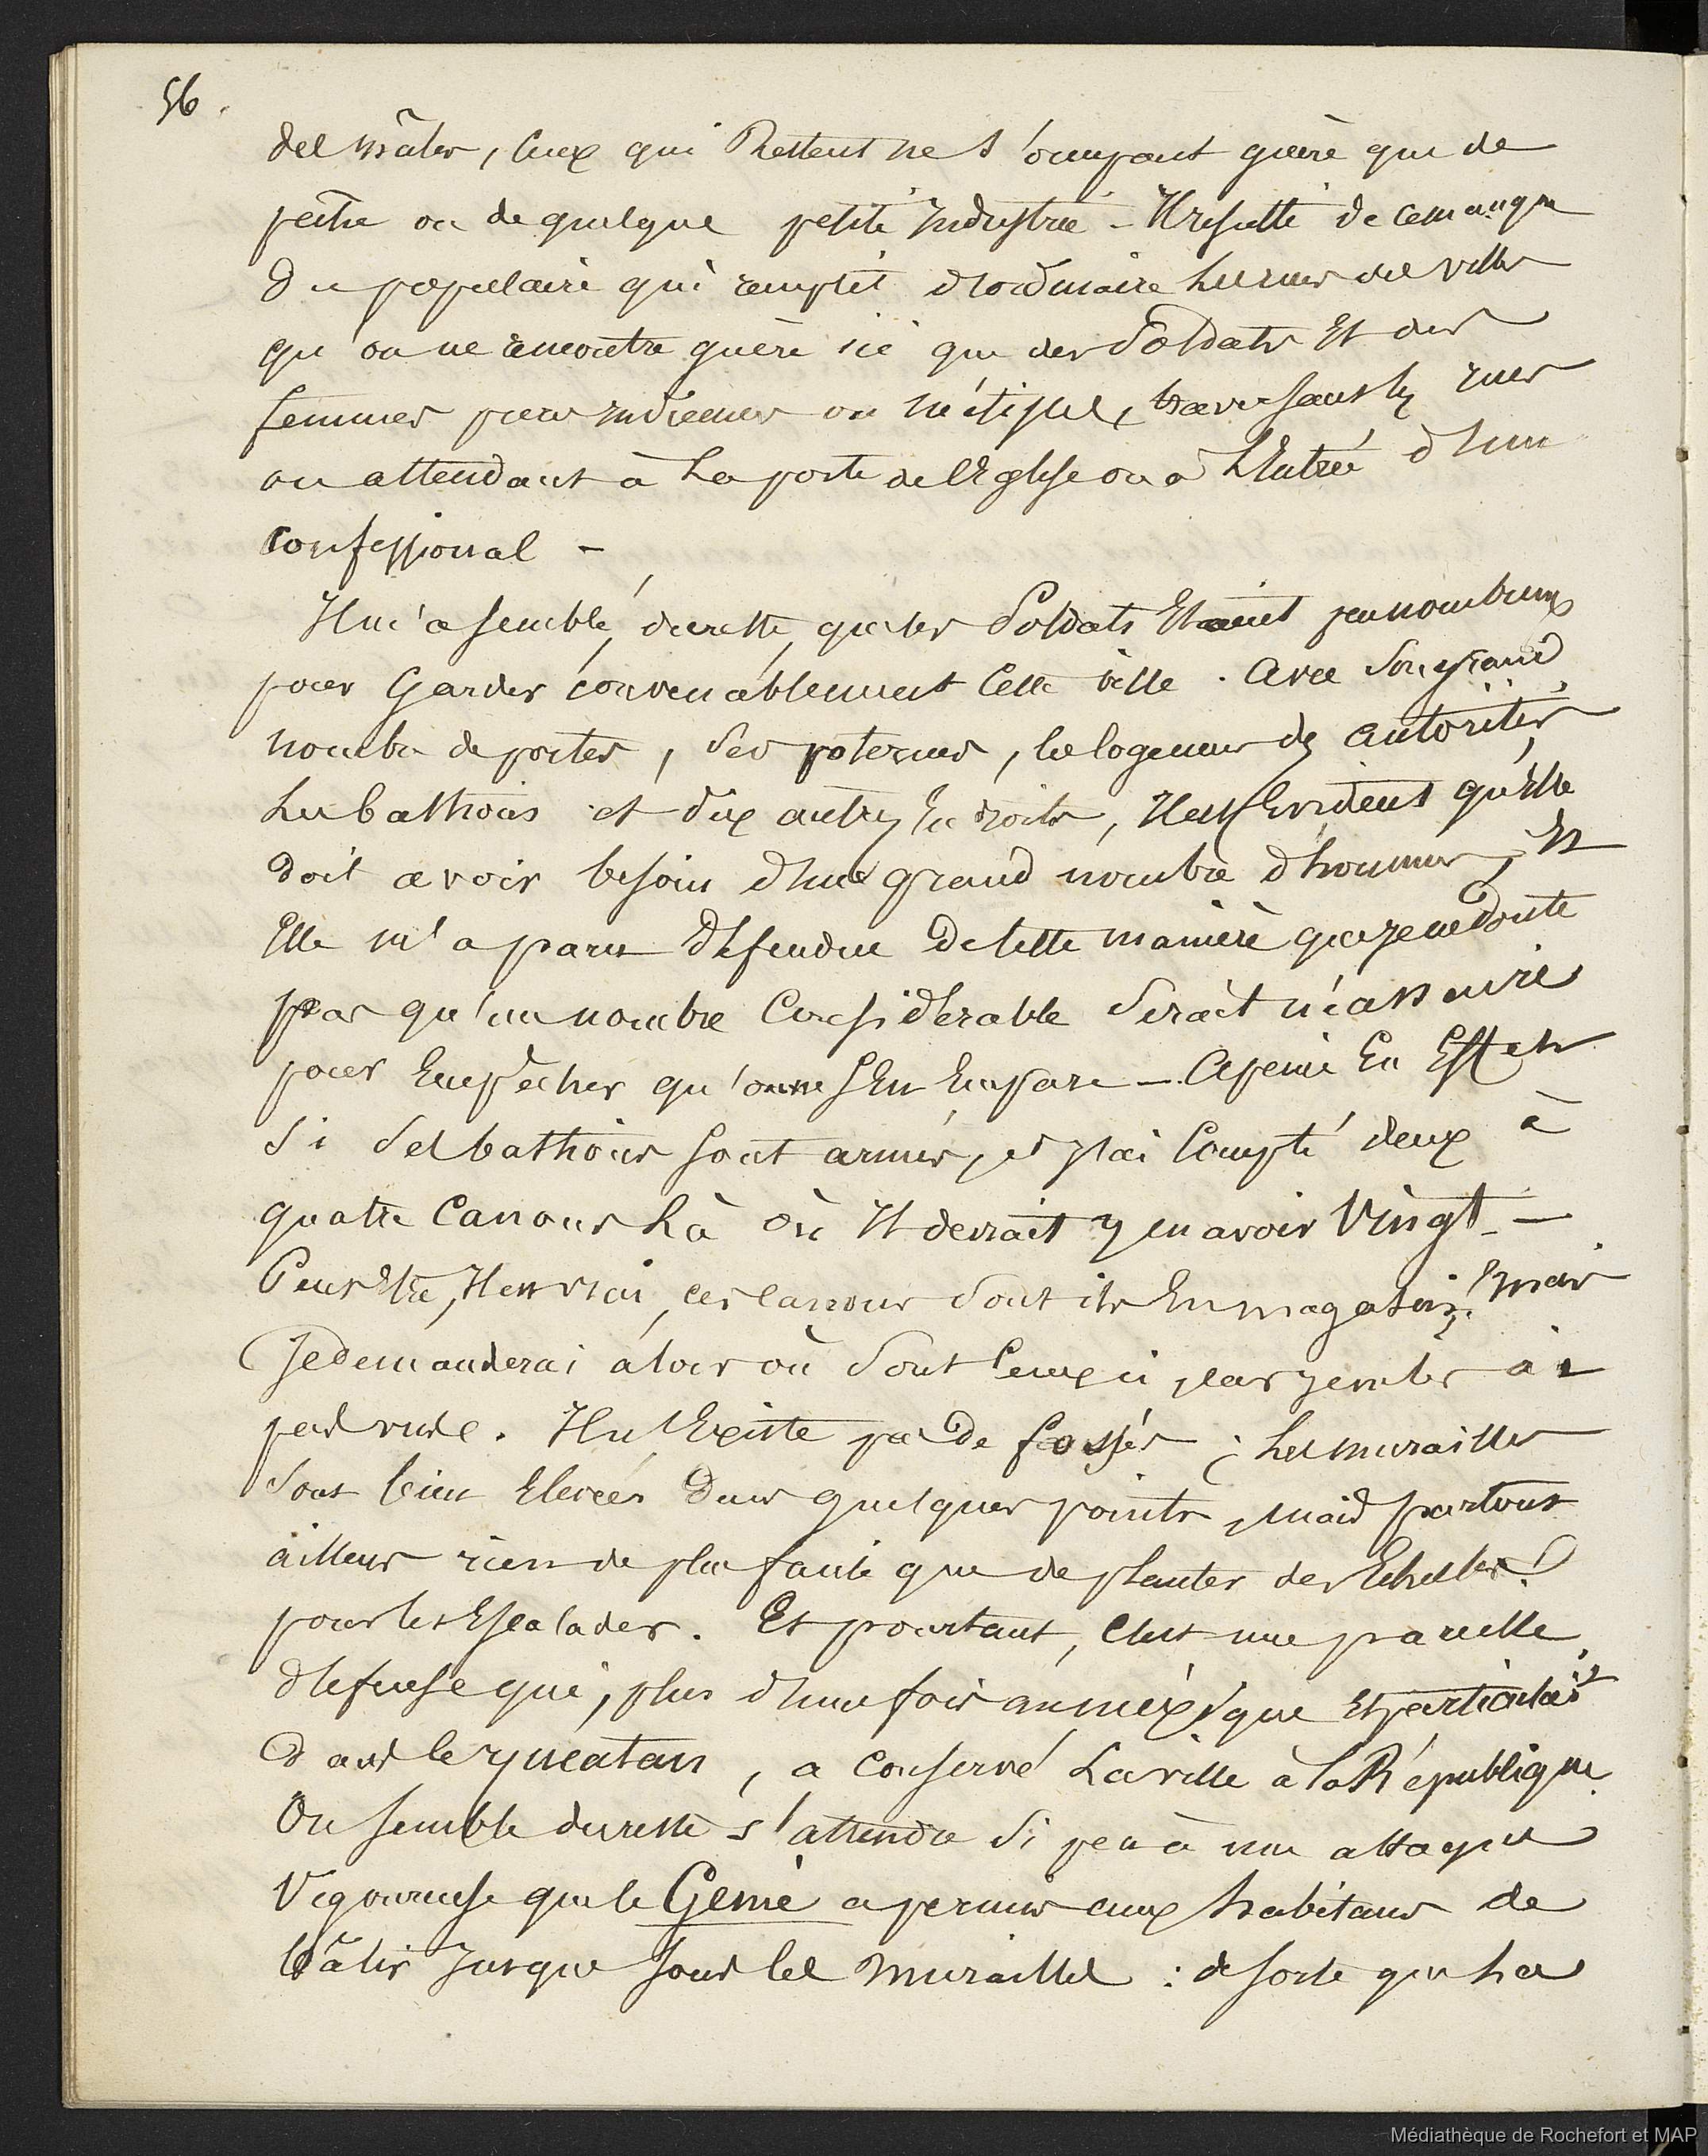 56.
des mâles, ceux qui Restent ne s'occupant guère que de
pêche ou de quelque petite Industrie - Il résulte de ce manque
du populaire qui remplit d'ordinaire les rues des villes
qu'on ne rencontre guère ici que des Soldats Et des
femmes pures Indiennes ou Métisses, traversant les rues
ou attendant à La porte de l'Eglise ou à L'Entrée d'un
Confessional -
Il m'a semblé, dureste, que les Soldats Etaient peu nombreux
pour Garder convenablement Cette ville. Avec Son grand
nombre de portes, Ses poternes, les logemens des autorités,
Les bastions et dix autres Endroits, Il est Evident qu'Elle
doit avoir besoin d'un grand nombre d'hommes, Et
Elle m'a paru défendue De telle manière que je ne Doute
pas qu'un nombre Considérable Serait nécessaire
pour Empêcher qu'on ne s'En Empare - Apeine En Effet
Si Ses bastions sont armés, et j'ai Compté deux à
quatre Canons Là où Il devrait y en avoir Vingt -
Peut Etre, Il est vrai, ces canons Sont ils En magasin; mais
Je demanderai alors où Sont Ceux ci, car je ne les ai
pas vus. Il n'Existe pas De fossés; Les murailles
Sont bien Elevées Dans quelques points, mais partout
ailleurs rien de plus facile que de planter des Echelles
pour les Escalader. Et pourtant, C'est une pareille
défense qui, plus d'une fois au méxique Et particulairt
Dans le yucatan, a Conservé La ville à la République.
On semble dureste s'attendre Si peu à une attaque
Vigoureuse que le Génie a permis aux habitans de
bâtir Jusque sous les Murailles : de sorte que La
Médiathèque de Rochefort et MAP